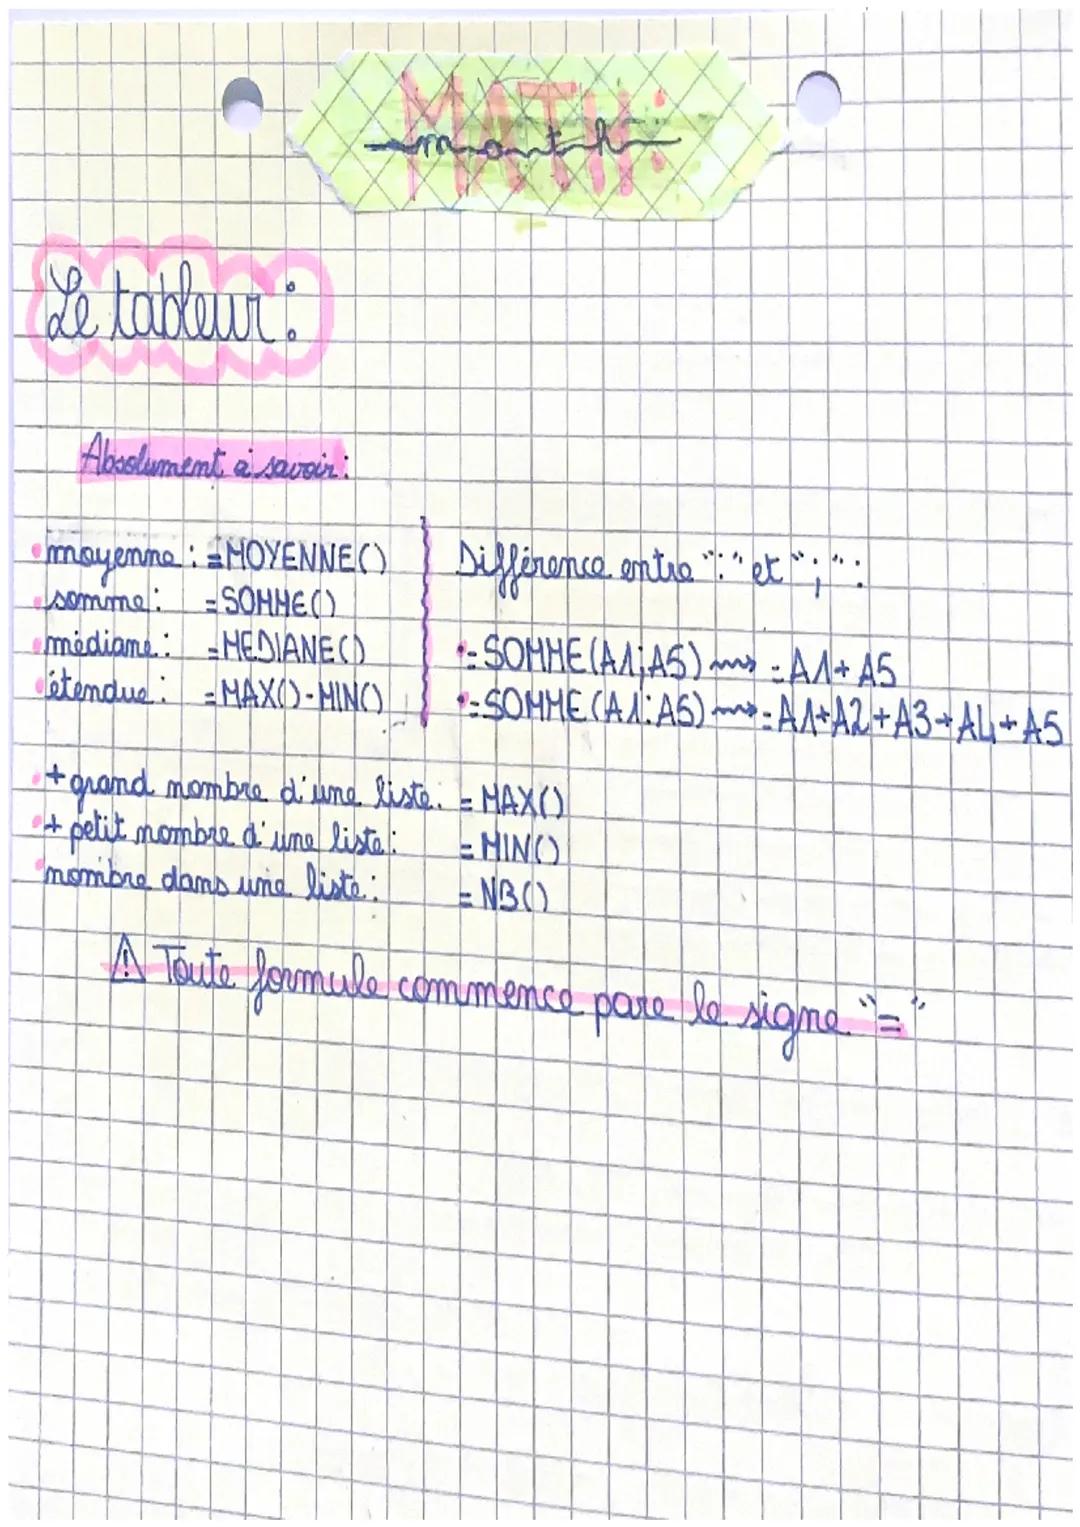 MATH:
math
Le tableur :
Absolument à savoir :
moyenne : =MOYENNE()
somme : =SOMME()
médiane : =MEDIANE()
étendue : =MAX()-MIN()
Différence entre ":" et ";" :
=SOMME(A1;A5) → =A1+A5
=SOMME(A1:A5) → =A1+A2+A3+A4+A5
+ grand nombre d'une liste : =MAX()
+ petit nombre d'une liste : =MIN()
nombre dans une liste : =NB()
⚠ Toute formule commence pare le signe "="